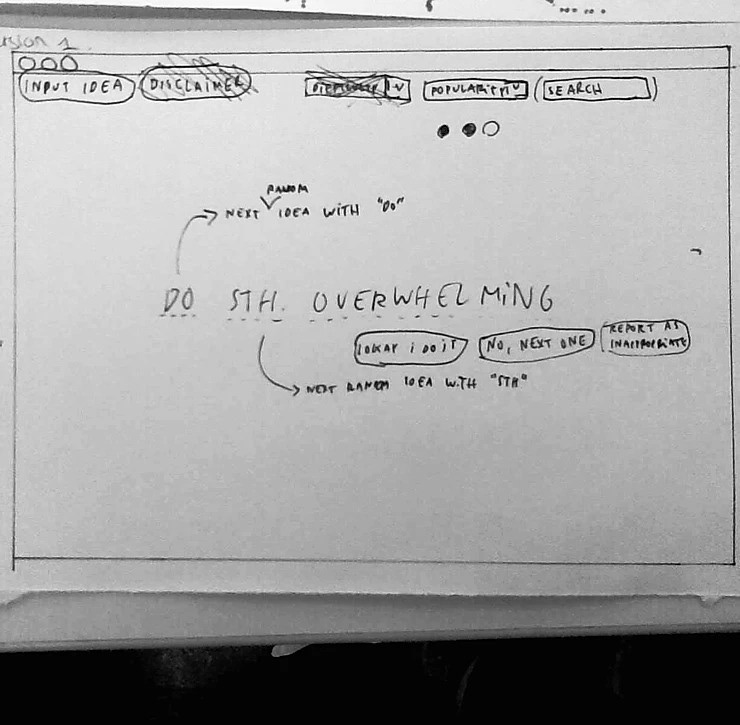 rsion 1
INPUT IDEA DISCLAIMER DIFFICULTY V POPULARITY V SEARCH
RANOM
NEXT IDEA WITH "DO"
DO STH. OVERWHELMING
OKAY I DO IT NO, NEXT ONE REPORT AS
INAPPROPRIATE
NEXT RANOM IDEA WITH "STH"